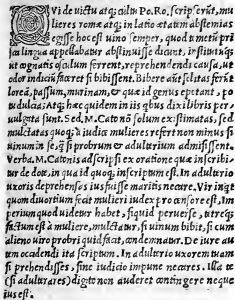 QVi de victu atq; cultu Po. Ro. scripserūt, mu
lieres romæ atq; in latio ætatem abstemias
egisse hoc est uino semper, quod temetū pri
sca lingua appellabatur abstinuisse dicunt, institutūq;
ut cognatis osculum ferrent, reprehendendi causa, ut
odor indiciū faceret si bibissent. Bibere aūt solitas ferūt
loream, passum, murinam, & quæ id genus epotant, po
tu dulcia. Atq; hæc quidem in iis qbus dixi libris per
vulgata sunt. Sed. M. Cato nō solum existimatas, sed
mulctatas quoq; à iudice mulieres refert non minus si
uinum in se, q̃ si probrum & adulterium admisissent.
Verba. M. Catonis adscripsi ex oratione quæ inscribi-
tur de dote, in qua id quoq; inscriptum est. In adulterio
uxores deprehensas ius fuisse maritis necare. Vir inqt
quom diuortium fecit mulieri iudex pro censore est, Im
perium quod uidetur habet, siquid peruerse, tetreq;
factum est à muliere, mulctatur, si uinum bibit, si cum
alieno uiro probri quid facit, condemnatur. De iure au
tem occidendi ita scriptum. In adulterio uxorem tuam
si prehendisses, sine iudicio impune necares. Illa te
(si adulterares) digito non auderet contingere neque
ius est.